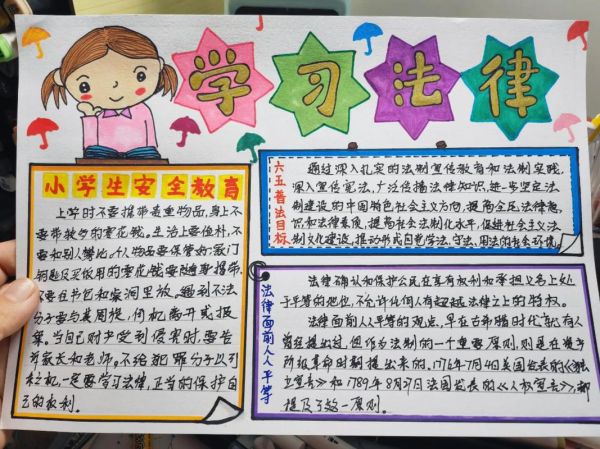 学习法律
小学生安全教育
上学时不要携带贵重物品,身上不
要带较多的零花钱。生活上要俭朴,不
要和别人攀比,个人物品要保管好:家门
钥匙及买饭用的零花钱要随身携带,
不要在书包和桌洞里放。遇到不法
分子要与其周旋,伺机离开或报
案。当自己的
告诉家长和老师。不给犯罪分子以可
乘之机,一定要学习法律,正当的保护自
己的权利。
六五普法目标
通过深入扎实的法制宣传教育和法制实践,
深入宣传宪法,广泛传播法律知识,进一步坚定法
制建设的中国特色社会主义方向,提高全民法律意
识和法律素质,提高社会法制化水平,促进社会主义法
制文化建设,推动形成自觉学法、守法、用法的社会环境。
法律面前人人平等
法律确认和保护公民在享有权利和承担义务上处
于平等的地位,不允许任何人有超越法律之上的特权。
法律面前人人平等的观点,早在古希腊时代就有人
曾经提出过,但作为法制的一个重要原则,则是在资产
阶级革命时期提出来的。1776年7月4日美国发表的《独
立宣言》和1789年8月
提及了这一原则。